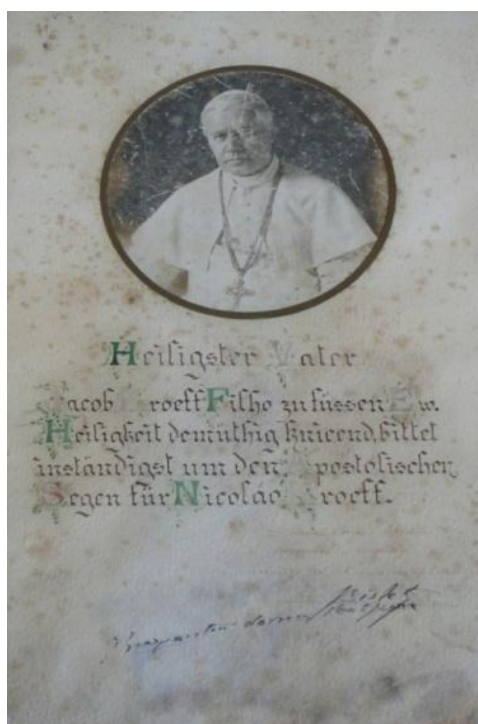 Heiligster Vater
Jacob Kroeff Filho zu füssen Ew.
Heiligkeit demüthig knieend, bittet
inständigst um den Apostolischen
Segen für Nicoláo Kroeff.